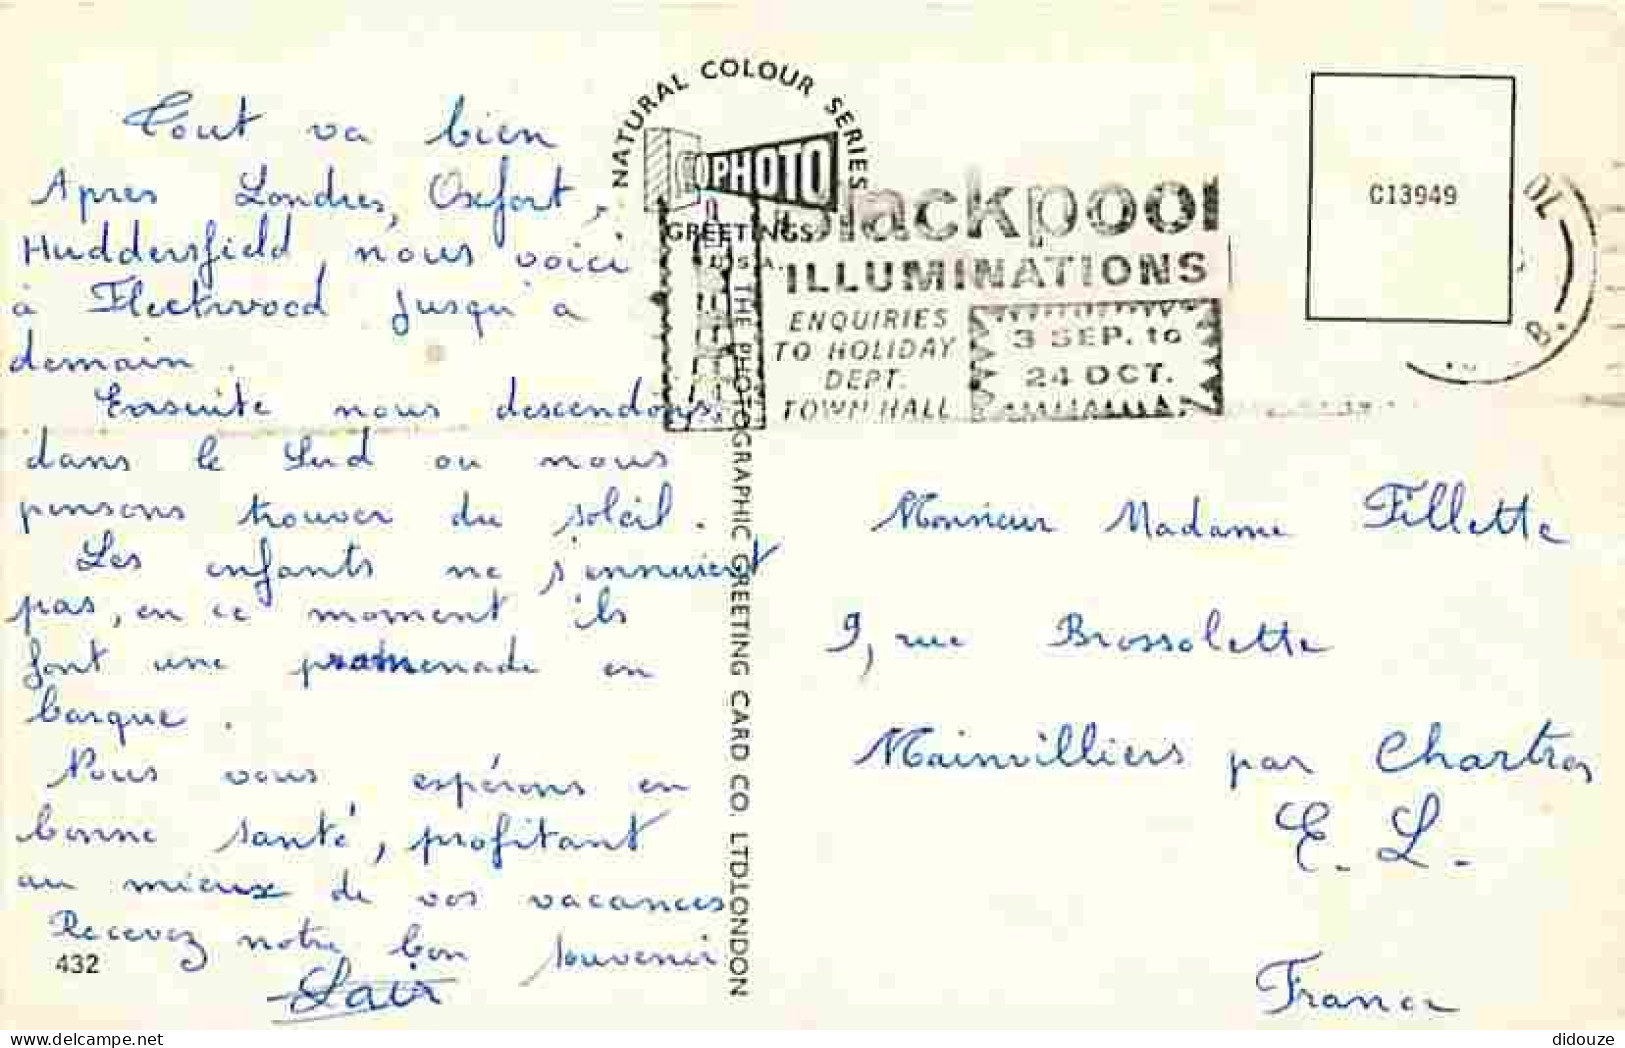 Tout va bien
Apres Londres, Oxefort,
Huddersfield, nous voici
à Fleetwood jusqu'a
demain.
Ensuite nous descendons,
dans le Sud ou nous
pensons trouver du soleil.
Les enfants ne s'ennuient
pas, en ce moment ils
font une promenade en
barque.
Nous vous espérons en
bonne santé, profitant
au mieux de vos vacances
Recevez notre bon souvenir
432
NATURAL COLOUR SERIES
PHOTO
GREETINGS
U.S.A.
THE PHOTOGRAPHIC GREETING CARD CO. LTD LONDON
Blackpool
ILLUMINATIONS
ENQUIRIES
TO HOLIDAY
DEPT.
TOWN HALL
3 SEP. to
24 OCT.
C13949
OL
B.
Monsieur Madame Fillette
9, rue Brossolette
Mainvilliers par Chartres
E. L.
France
delcampe.net
didouze